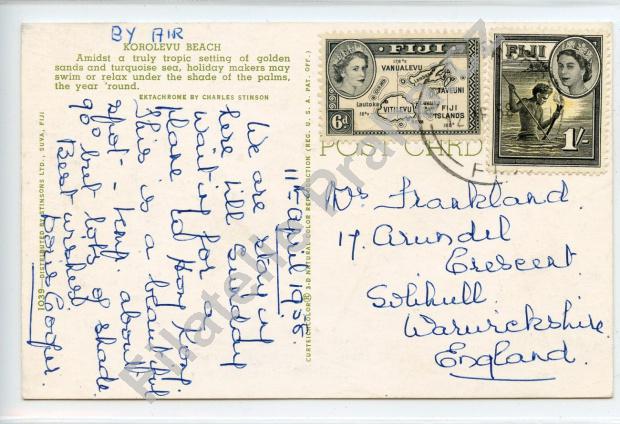 BY AIR
KOROLEVU BEACH
Amidst a truly tropic setting of golden
sands and turquoise sea, holiday makers may
swim or relax under the shade of the palms,
the year 'round.
EKTACHROME BY CHARLES STINSON
1039—DISTRIBUTED BY STINSONS LTD., SUVA, FIJI
11th April 1958.
We are staying
here till Sunday
waiting for a
plane to Hong Kong
This is a beautiful
spot - temp. about
90° but lots of shade.
Best wishes
CURTEICHCOLOR® 3-D NATURAL COLOR REPRODUCTION (REG. U.S.A. PAT. OFF.)
POST CARD
FIJI
VANUALEVU
TAVEUNI
Lautoka
VITILEVU
FIJI
ISLANDS
6d
FIJI
1/-
Frankland
17, Arundel
Crescent
Solihull
Warwickshire
England
Filatelie Praha